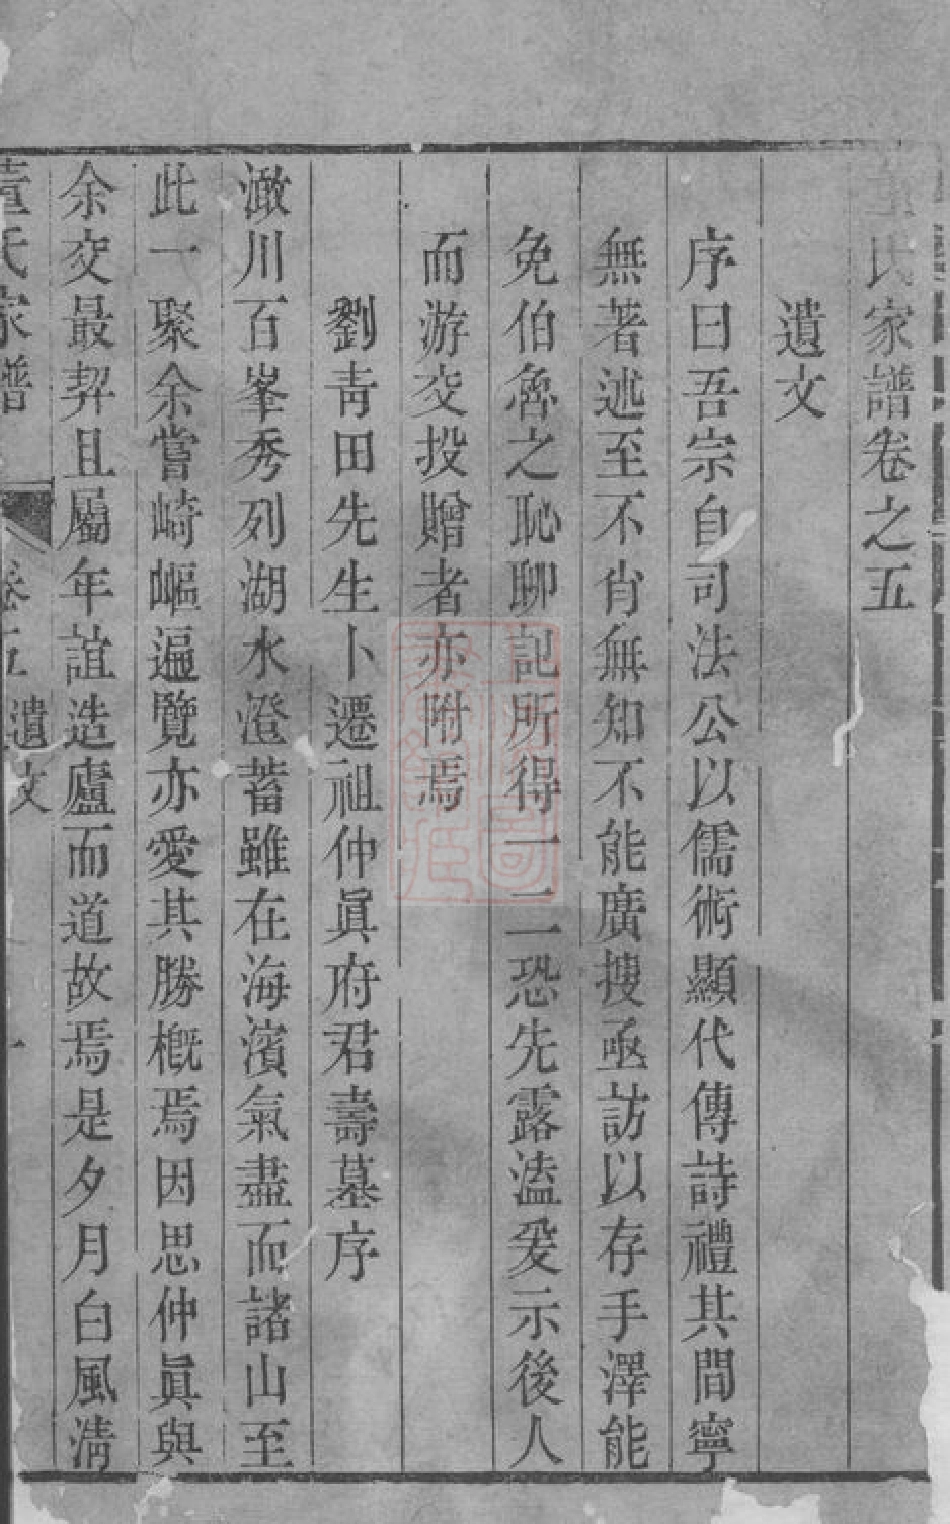 董氏家譜卷之五
遺文
序曰吾宗自司法公以儒術顯代傳詩禮其間寧
無著述至不肖無知不能廣搜亟訪以存手澤能
免伯魯之恥聊記所得一二恐先露溘爰示後人
而游交投贈者亦附焉
劉青田先生卜遷祖仲眞府君壽墓序
澉川百峯秀列湖水澄蓄雖在海濱氣盡而諸山至
此一聚余嘗崎嶇遍覽亦愛其勝槪焉因思仲眞與
余交最契且屬年誼造廬而道故焉是夕月白風淸
董氏家譜 卷五 遺文 一